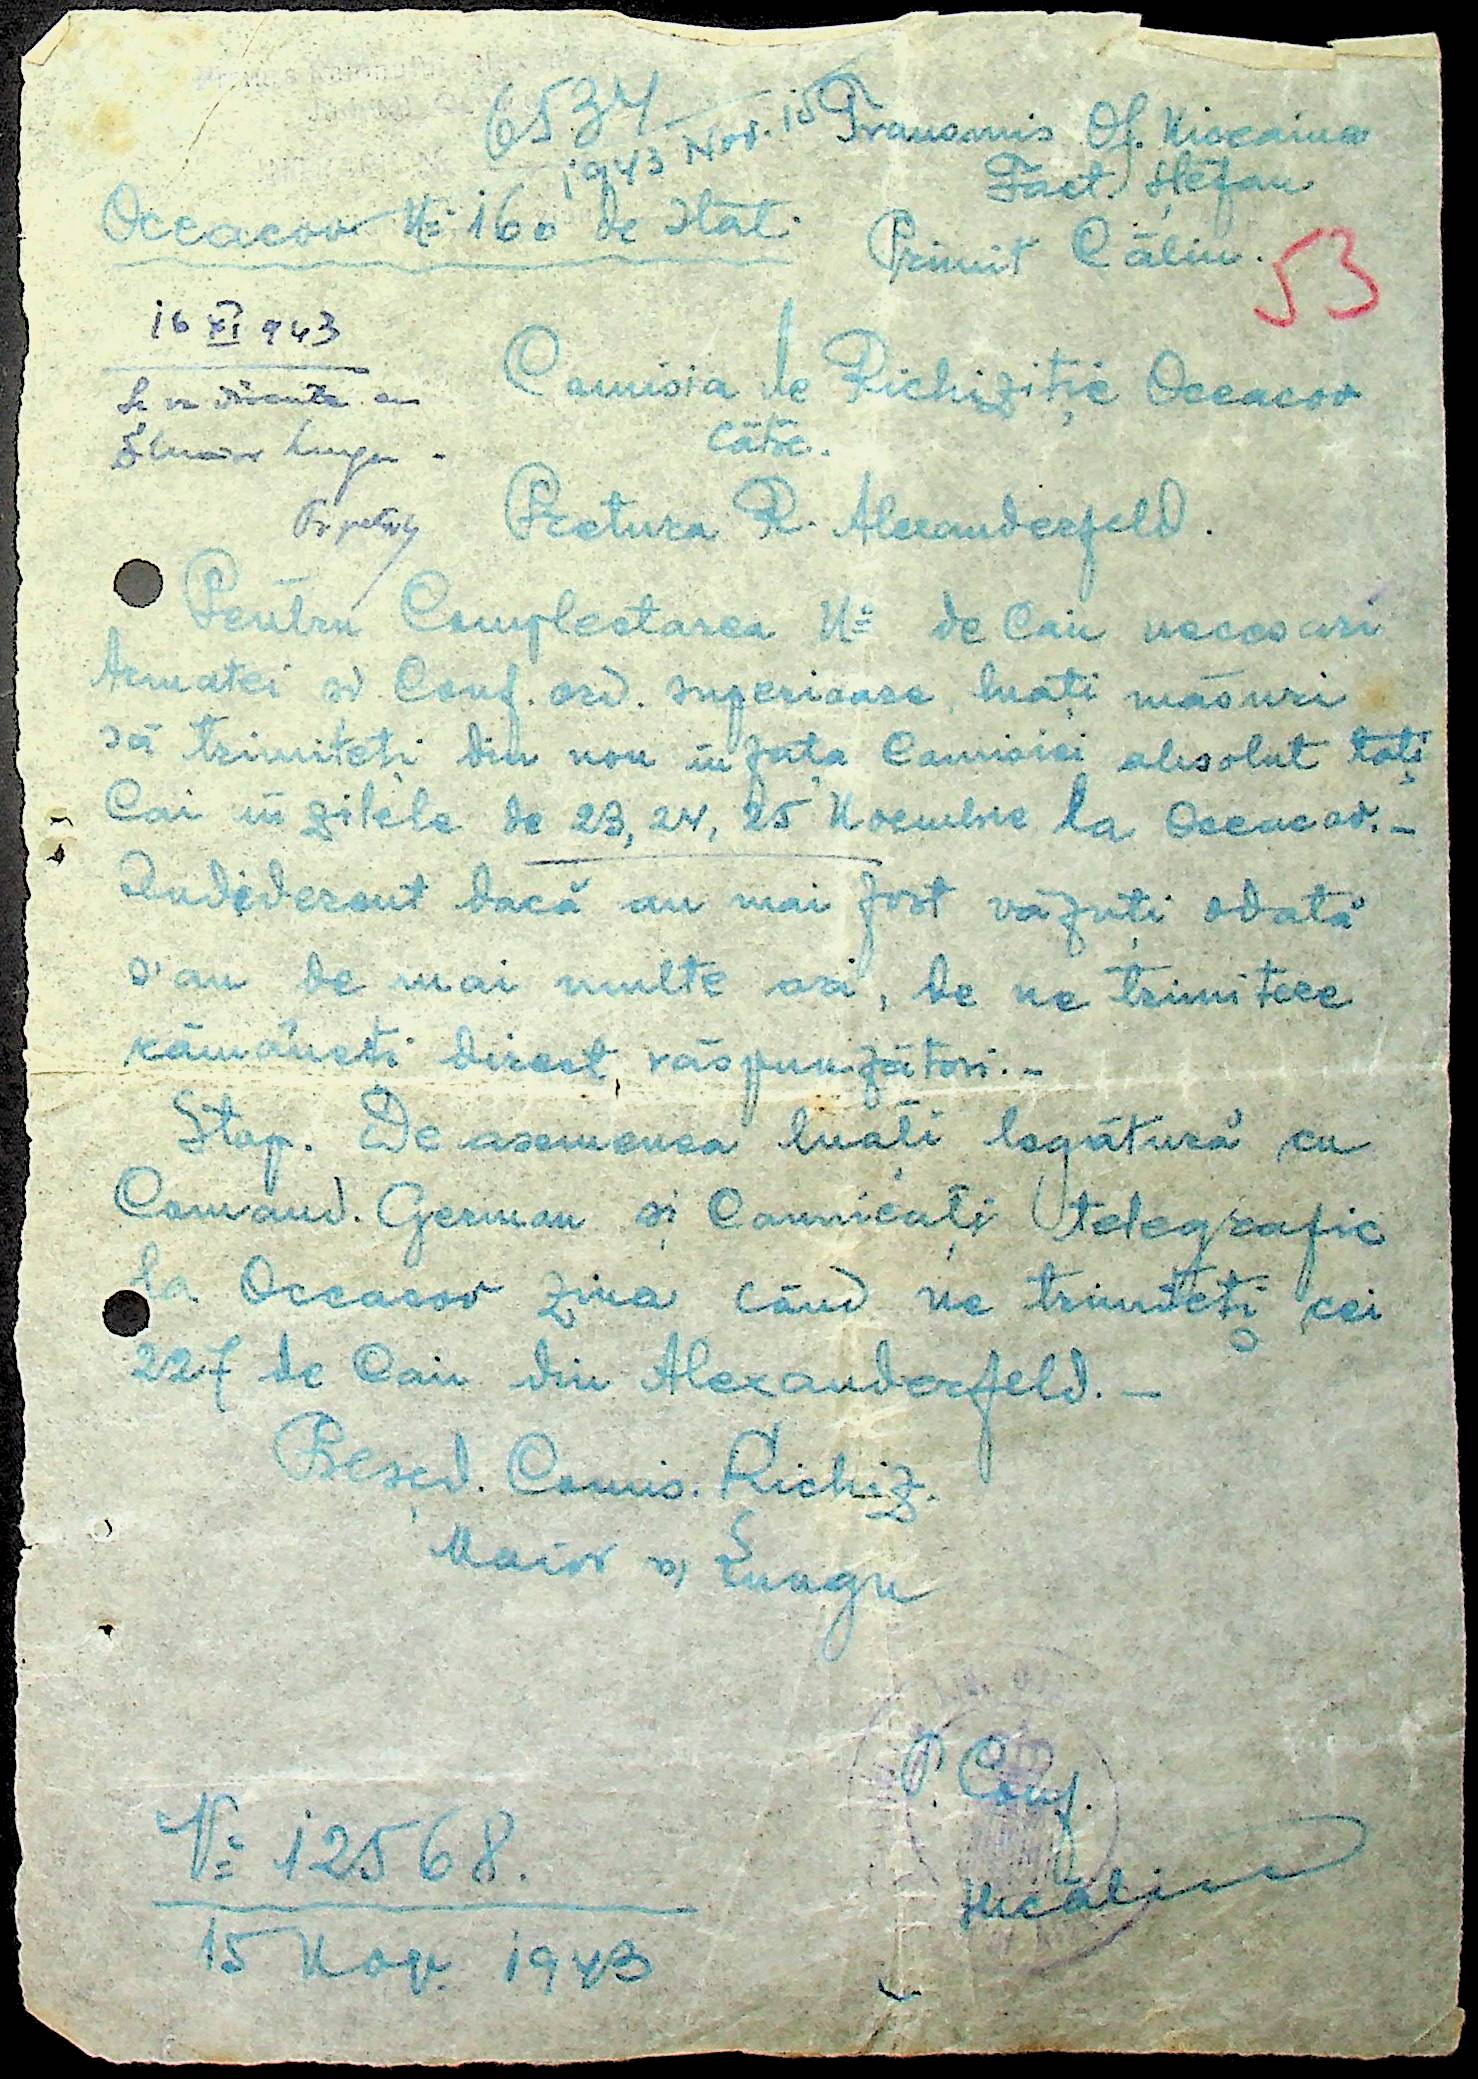 6534
1943 Nov. 15
Transmis Of.
Fact. Ștefan
Oceacov № 160 de stat.
Primit Călin.
53
16 XI 943
Se va discuta cu
Comisia de Richiziție Oceacov
către.
Pretura R. Alexanderfeld.
Pentru Complectarea № de Cai necesari
Armatei și Conf. ord. superioare, luați măsuri
să trimiteți din nou în fața Comisiei absolut toți
Cai în zilele de 23, 24, 25 Noembrie la Oceacov.-
Indiderent dacă au mai fost văzuți odată
s'au de mai multe ori, de ne trimitere
rămâneți direct răspunzători.-
Stop. De asemenea luați legătură cu
Comand. German și Comnicați telegrafic
la Oceacov ziua când ne trimiteți cei
227 de Cai din Alexanderfeld.-
Președ. Comis. Richiz.
Maior s) Lungu
P. Conf.
№ 12568.
15 Nov. 1943